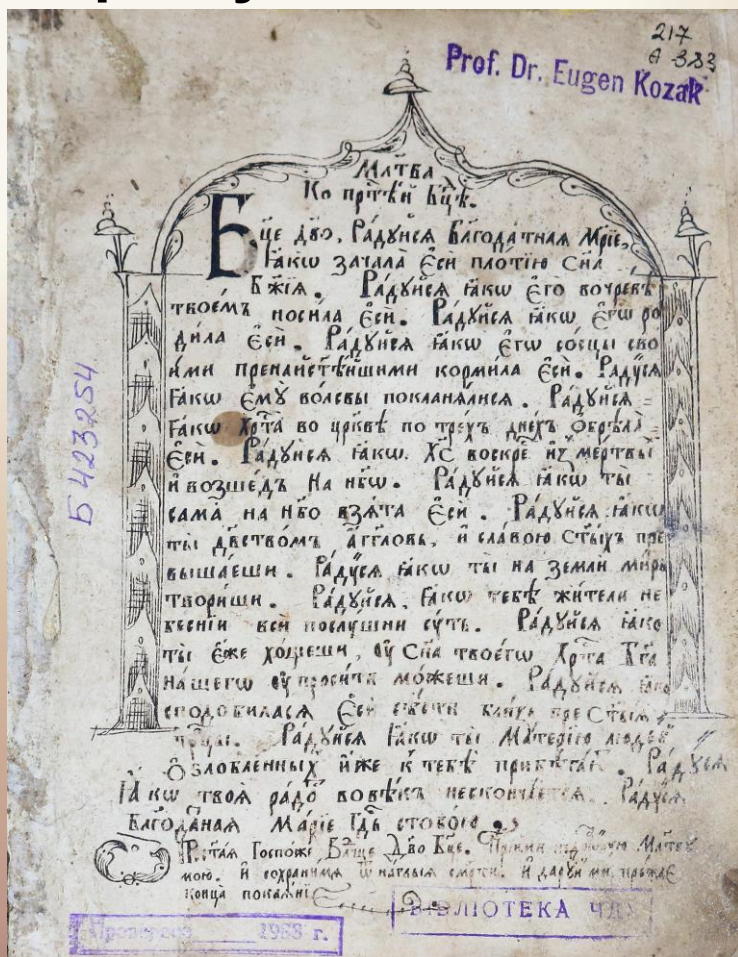 217
Prof. Dr. Eugen Kozak
Б 423254
Мл҃тва
Ко прⷭ҇тѣй Бц҃ѣ.
Бц҃е дв҃о, Ра́дꙋйсѧ Благода́тнаѧ Мр҃їе,
ꙗ҆́кѡ зачала̀ є҆сѝ пло́тїю Сн҃а
Бж҃їѧ. Ра́дꙋйсѧ ꙗ҆́кѡ є҆го̀ во чре́вѣ
твое́мъ носи́ла є҆сѝ. Ра́дꙋйсѧ ꙗ҆́кѡ є҆гѡ̀ ро
ди́ла є҆сѝ. Ра́дꙋйсѧ ꙗ҆́кѡ є҆гѡ̀ сосцы̀ сво
и́ми пренаⷭ҇тѣ́йшими корми́ла є҆сѝ. Ра́дꙋсѧ
ꙗ҆́кѡ є҆мꙋ̀ волсвы̀ покланѧ́лисѧ. Ра́дꙋйсѧ
ꙗ҆́кѡ Хрⷭ҇та̀ во цр҃квѣ по трє́хъ дне́хъ ѡбрѣла̀
є҆сѝ. Ра́дꙋйсѧ ꙗ҆́кѡ Хс҃ воскр҃е и҆з̾ ме́ртвы
и҆ возше́дъ на нб҃ѡ. Ра́дꙋйсѧ ꙗ҆́кѡ ты̀
сама̀ на нб҃о взѧ́та є҆сѝ. Ра́дꙋйсѧ ꙗ҆́кѡ
ты̀ дв҃ство́мъ а҆́гг҃лѡвъ, и҆ сла́вою ст҃ы́хъ пре
выша́еши. Ра́дꙋсѧ ꙗ҆́кѡ ты̀ на землѝ ми́ръ
твори́ши. Ра́дꙋйсѧ, ꙗ҆́кѡ тебѣ̀ жи́тели не
бе́снїи всѝ послꙋ́шни сꙋ́ть. Ра́дꙋйсѧ ꙗ҆́кѡ
ты̀ є҆́же хо́щеши, ᲂу҆ Сн҃а твоегѡ̀ Хрⷭ҇та̀ Бг҃а
на́шегѡ ᲂу҆проси́ти мо́жеши. Ра́дꙋйсѧ ꙗ҆́кѡ
сподо́биласѧ є҆сѝ сѣ́сти бли́зъ прест҃ы́ѧ
трⷪ҇цы. Ра́дꙋйсѧ ꙗ҆́кѡ ты̀ Ма́терїю люде́й
ѡ҆ѕло́бленныхъ и҆́же к̾ тебѣ̀ прибѣга́ю. Ра́дꙋсѧ
ꙗ҆́кѡ твоѧ̀ ра́дость во вѣ́къ нескончае́тсѧ. Ра́дꙋсѧ
Благода́наѧ Марі́е Гдⷭ҇ь с тобо́ю
Прⷭ҇таѧ Госпожѐ Влⷣчце Дв҃о Бц҃е. Прїимѝ Мл҃твꙋ
мою. и҆ сохранѝ мѧ ѿ наглыѧ сме́рти. и҆ да́рꙋй ми пре́жде
конца̀ покаѧ́нїе
Проверено 1988 г.
БІБЛІОТЕКА ЧДУ